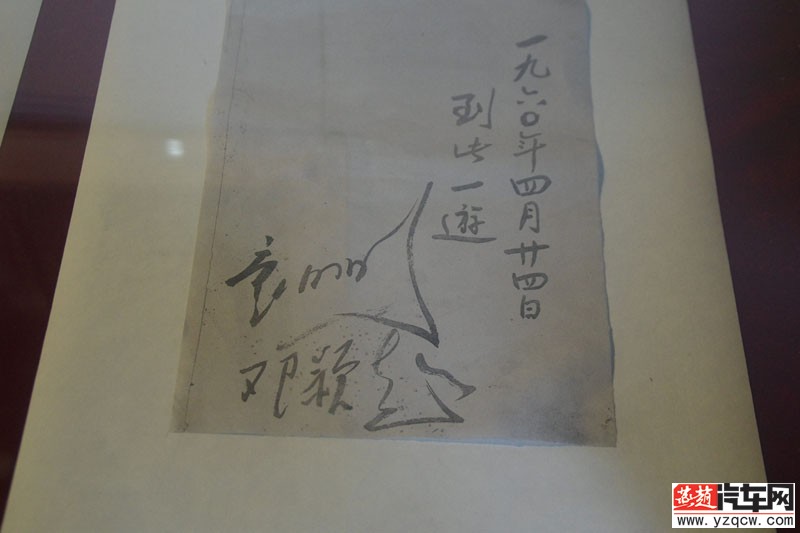 一九六〇年四月廿四日
到此一遊
邓颖超
燕趙汽车网
www.yzqcw.com